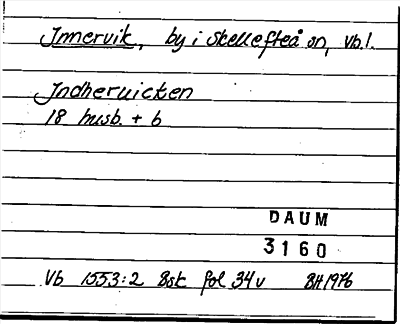 Innervik, by i Skellefteå sn, Vb!.
Indheruicten
18 husb. + 6
DAUM
3160
Vb 1553:2 Bsk fol 34v BH1976